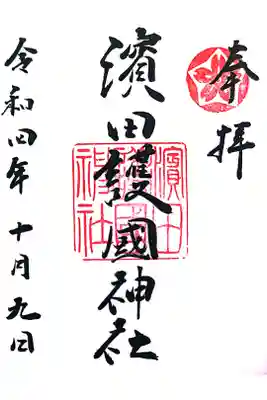 奉拝
濱田護國神社
濱田護國神社
令和四年十月九日